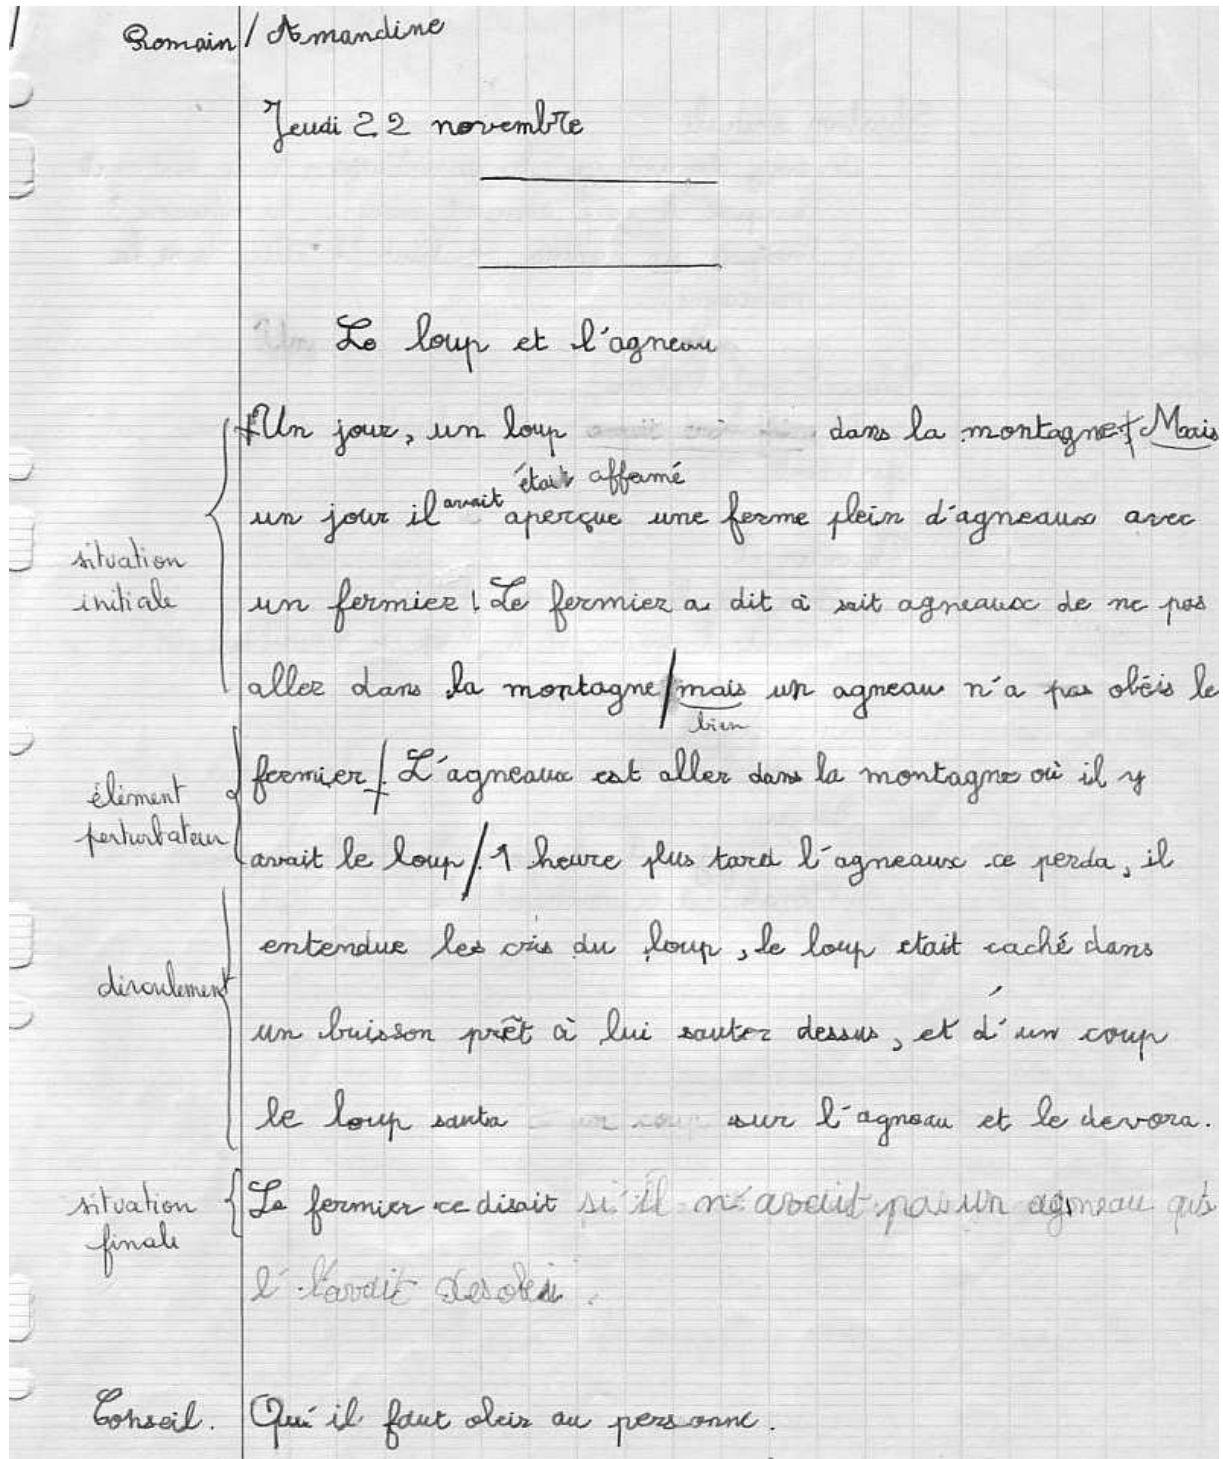 Romain / Amandine
Jeudi 22 novembre
Le loup et l'agneau
Un jour, un loup dans la montagne. Mais
était affamé
un jour il avait aperçue une ferme plein d'agneaux avec
situation
initiale
un fermier ! Le fermier a dit à sait agneaux de ne pas
aller dans la montagne / mais un agneau n'a pas obéis le
bien
élément
perturbateur
fermier. L'agneaux est aller dans la montagne où il y
avait le loup /. 1 heure plus tard l'agneaux ce perda, il
entendue les cris du loup, le loup etait caché dans
déroulement
un buisson prêt à lui sauter dessus, et d'un coup
le loup sauta sur l'agneau et le devora.
situation
finale
Le fermier ce disait si il n'avait pas un agneau
l'avait desobéi.
Conseil. Qu'il faut obeir au personne.